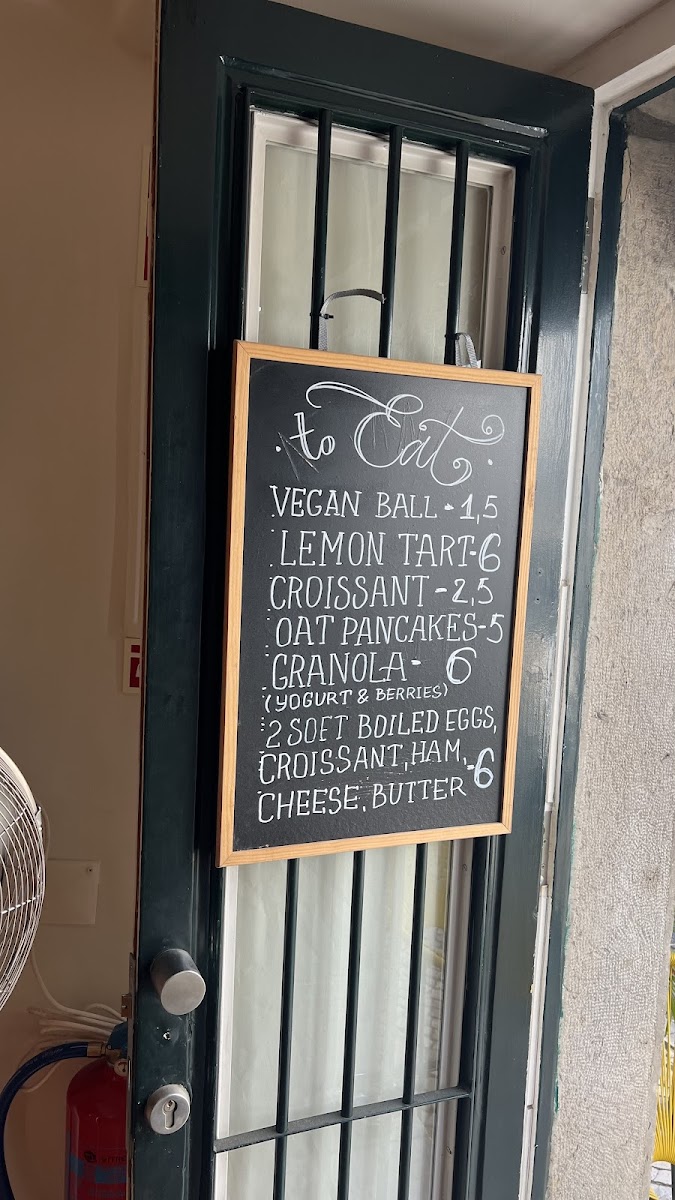 ·to Eat·
VEGAN BALL - 1,5
LEMON TART-6
CROISSANT - 2,5
OAT PANCAKES-5
GRANOLA- 6
(YOGURT & BERRIES)
2 SOFT BOILED EGGS,
CROISSANT, HAM,
CHEESE, BUTTER -6